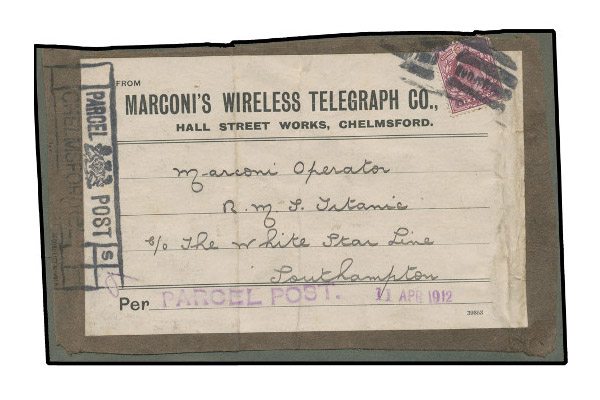 FROM
MARCONI'S WIRELESS TELEGRAPH CO.,
HALL STREET WORKS, CHELMSFORD.
Marconi Operator
R. M. S. Titanic
c/o The White Star Line
Southampton
Per PARCEL POST. 11 APR 1912
39853
PARCEL POST S
CHELMSFORD